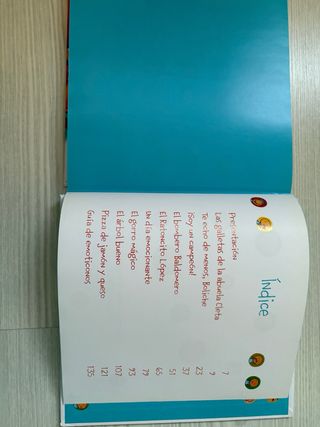 Índice
Presentación 7
Las galletas de la abuela Cleta 9
Te echo de menos, Boliche 23
¡Soy un campeón! 37
El bombero Baldomero 51
El Ratoncito López 65
Un día emocionante 79
El gorro mágico 93
El árbol bueno 107
Pizza de jamón y queso 121
Guía de emoticonos 135